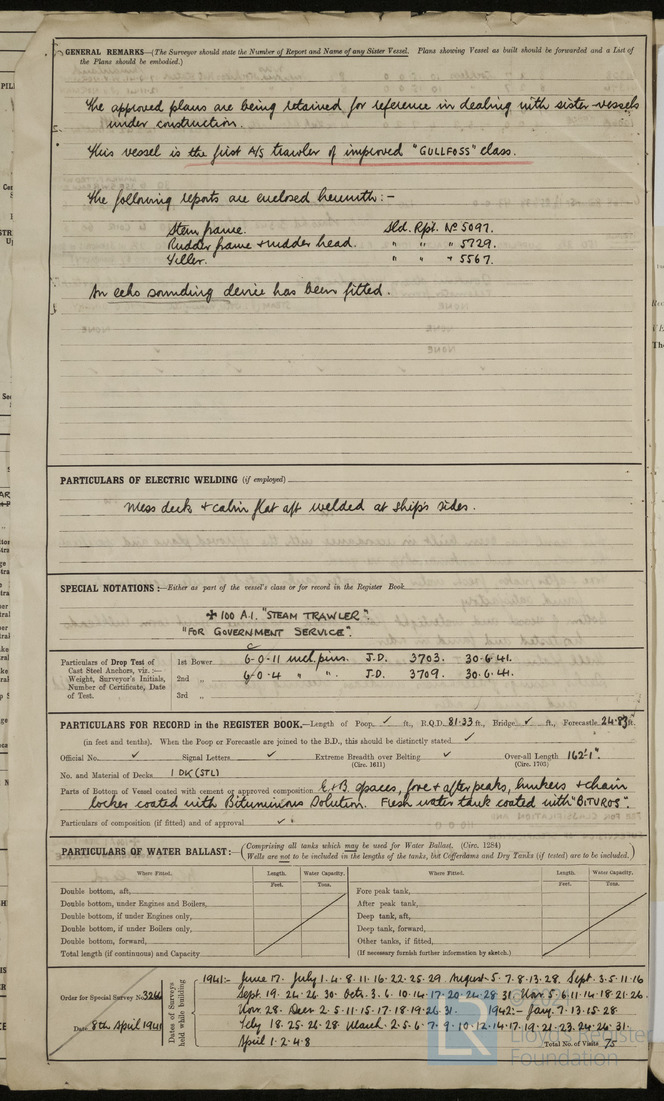 GENERAL REMARKS—(The Surveyor should state the Number of Report and Name of any Sister Vessel. Plans showing Vessel as built should be forwarded and a List of
the Plans should be embodied.)
The approved plans are being retained for reference in dealing with sister-vessels
under construction.
This vessel is the first A/S trawler of improved "GULLFOSS" class.
The following reports are enclosed herewith:-
Stern frame. Sld. Rpt. No 5097.
Rudder frame & rudder head. " " " 5729.
Tiller. " " " 5567.
An echo sounding device has been fitted.
PARTICULARS OF ELECTRIC WELDING (if employed)
Mess deck & cabin flat aft welded at ship's sides.
SPECIAL NOTATIONS:—Either as part of the vessel's class or for record in the Register Book
✠ 100 A.1. "STEAM TRAWLER".
"FOR GOVERNMENT SERVICE".
Particulars of Drop Test of
Cast Steel Anchors, viz. :—
Weight, Surveyor's Initials,
Number of Certificate, Date
of Test.
1st Bower 6-0-11 incl. pins. J.D. 3703. 30.6.41.
2nd " 6-0-4 " " J.D. 3709. 30.6.41.
3rd "
PARTICULARS FOR RECORD in the REGISTER BOOK.—Length of Poop ✓ ft., R.Q.D. 81.33 ft., Bridge ✓ ft., Forecastle 24.83 ft.
(in feet and tenths). When the Poop or Forecastle are joined to the B.D., this should be distinctly stated ✓
Official No. ✓ Signal Letters ✓ Extreme Breadth over Belting ✓ Over-all Length 162'-1".
(Circ. 1611) (Circ. 1703)
No. and Material of Decks 1 DK (STL)
Parts of Bottom of Vessel coated with cement or approved composition E & B. spaces, fore & after peaks, bunkers & chain
locker coated with Bituminous Solution. Fresh water tank coated with "BITUROS".
Particulars of composition (if fitted) and of approval ✓
PARTICULARS OF WATER BALLAST:—(Comprising all tanks which may be used for Water Ballast. (Circ. 1284)
Wells are not to be included in the lengths of the tanks, but Cofferdams and Dry Tanks (if tested) are to be included.)
Where Fitted. Length. Water Capacity. Where Fitted. Length. Water Capacity.
Feet. Tons. Feet. Tons.
Double bottom, aft, Fore peak tank,
Double bottom, under Engines and Boilers, After peak tank,
Double bottom, if under Engines only, Deep tank, aft,
Double bottom, if under Boilers only, Deep tank, forward,
Double bottom, forward, Other tanks, if fitted,
Total length (if continuous) and Capacity (If necessary furnish further information by sketch.)
Order for Special Survey No. 3266
Date 8th April 1941
Dates of Surveys held while building
1941:- June 17. July 1.4.8.11.16.22.25.29. August 5.7.8.13.28. Sept. 3.5.11.16
Sept. 19.24.26.30. Oct. 3.6.10.14.17.20.24.28.31. Nov. 5.6.11.14.18.21.26.
Nov. 28. Decr 2.5.11.15.17.18.19.26.31. 1942:- Jany. 7.13.15.28.
Feby 18.25.26.28. March 2.5.6.7.9.10.12.14.17.19.21.23.24.26.31.
April 1.2.4.8
Total No. of Visits 75
© 2021
Lloyd's Register
Foundation
LR